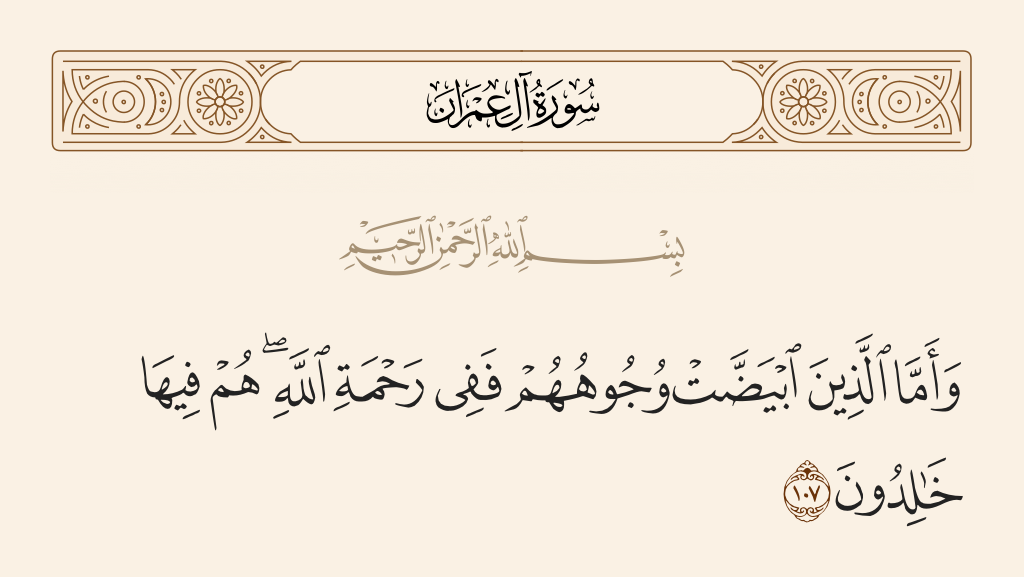 سُورَةُ آلِ عِمْرَان
بِسْمِ ٱللَّهِ ٱلرَّحْمَٰنِ ٱلرَّحِيمِ
وَأَمَّا ٱلَّذِينَ ٱبْيَضَّتْ وُجُوهُهُمْ فَفِى رَحْمَةِ ٱللَّهِ ۖ هُمْ فِيهَا
خَـٰلِدُونَ ١٠٧